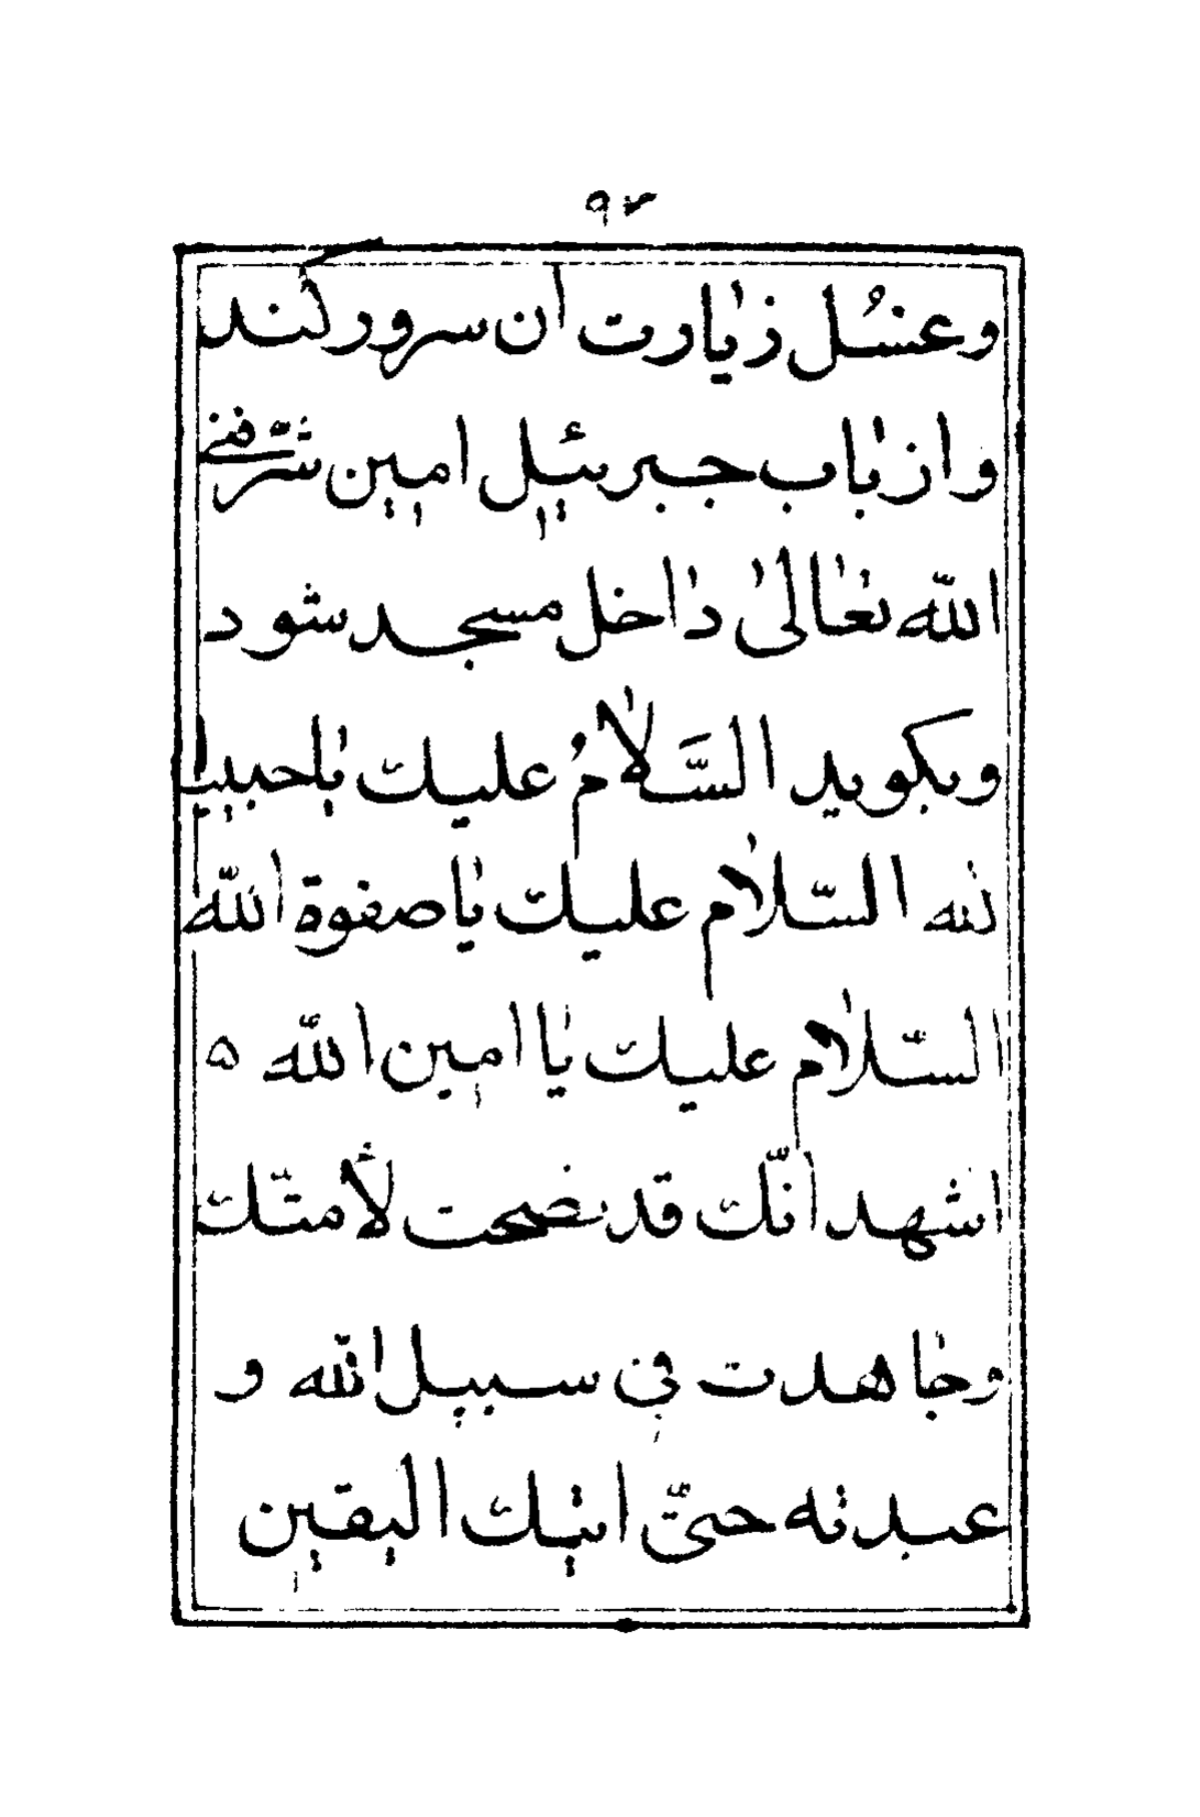 ۹۲
وغسُل زیارت ان سرور کند
واز باب جبرئیل امین شرّفنی
اللّه تعالی داخل مسجد شود
وبکوید السَّلامُ علیك یاحبیبا
لله السّلام علیك یاصفوة اللّه
السّلام علیك یا امین اللّه ه
اشهد انّك قد نصحت لأمتّك
وجاهدت فی سبیل اللّه و
عبدته حتّی اتیك الیقین